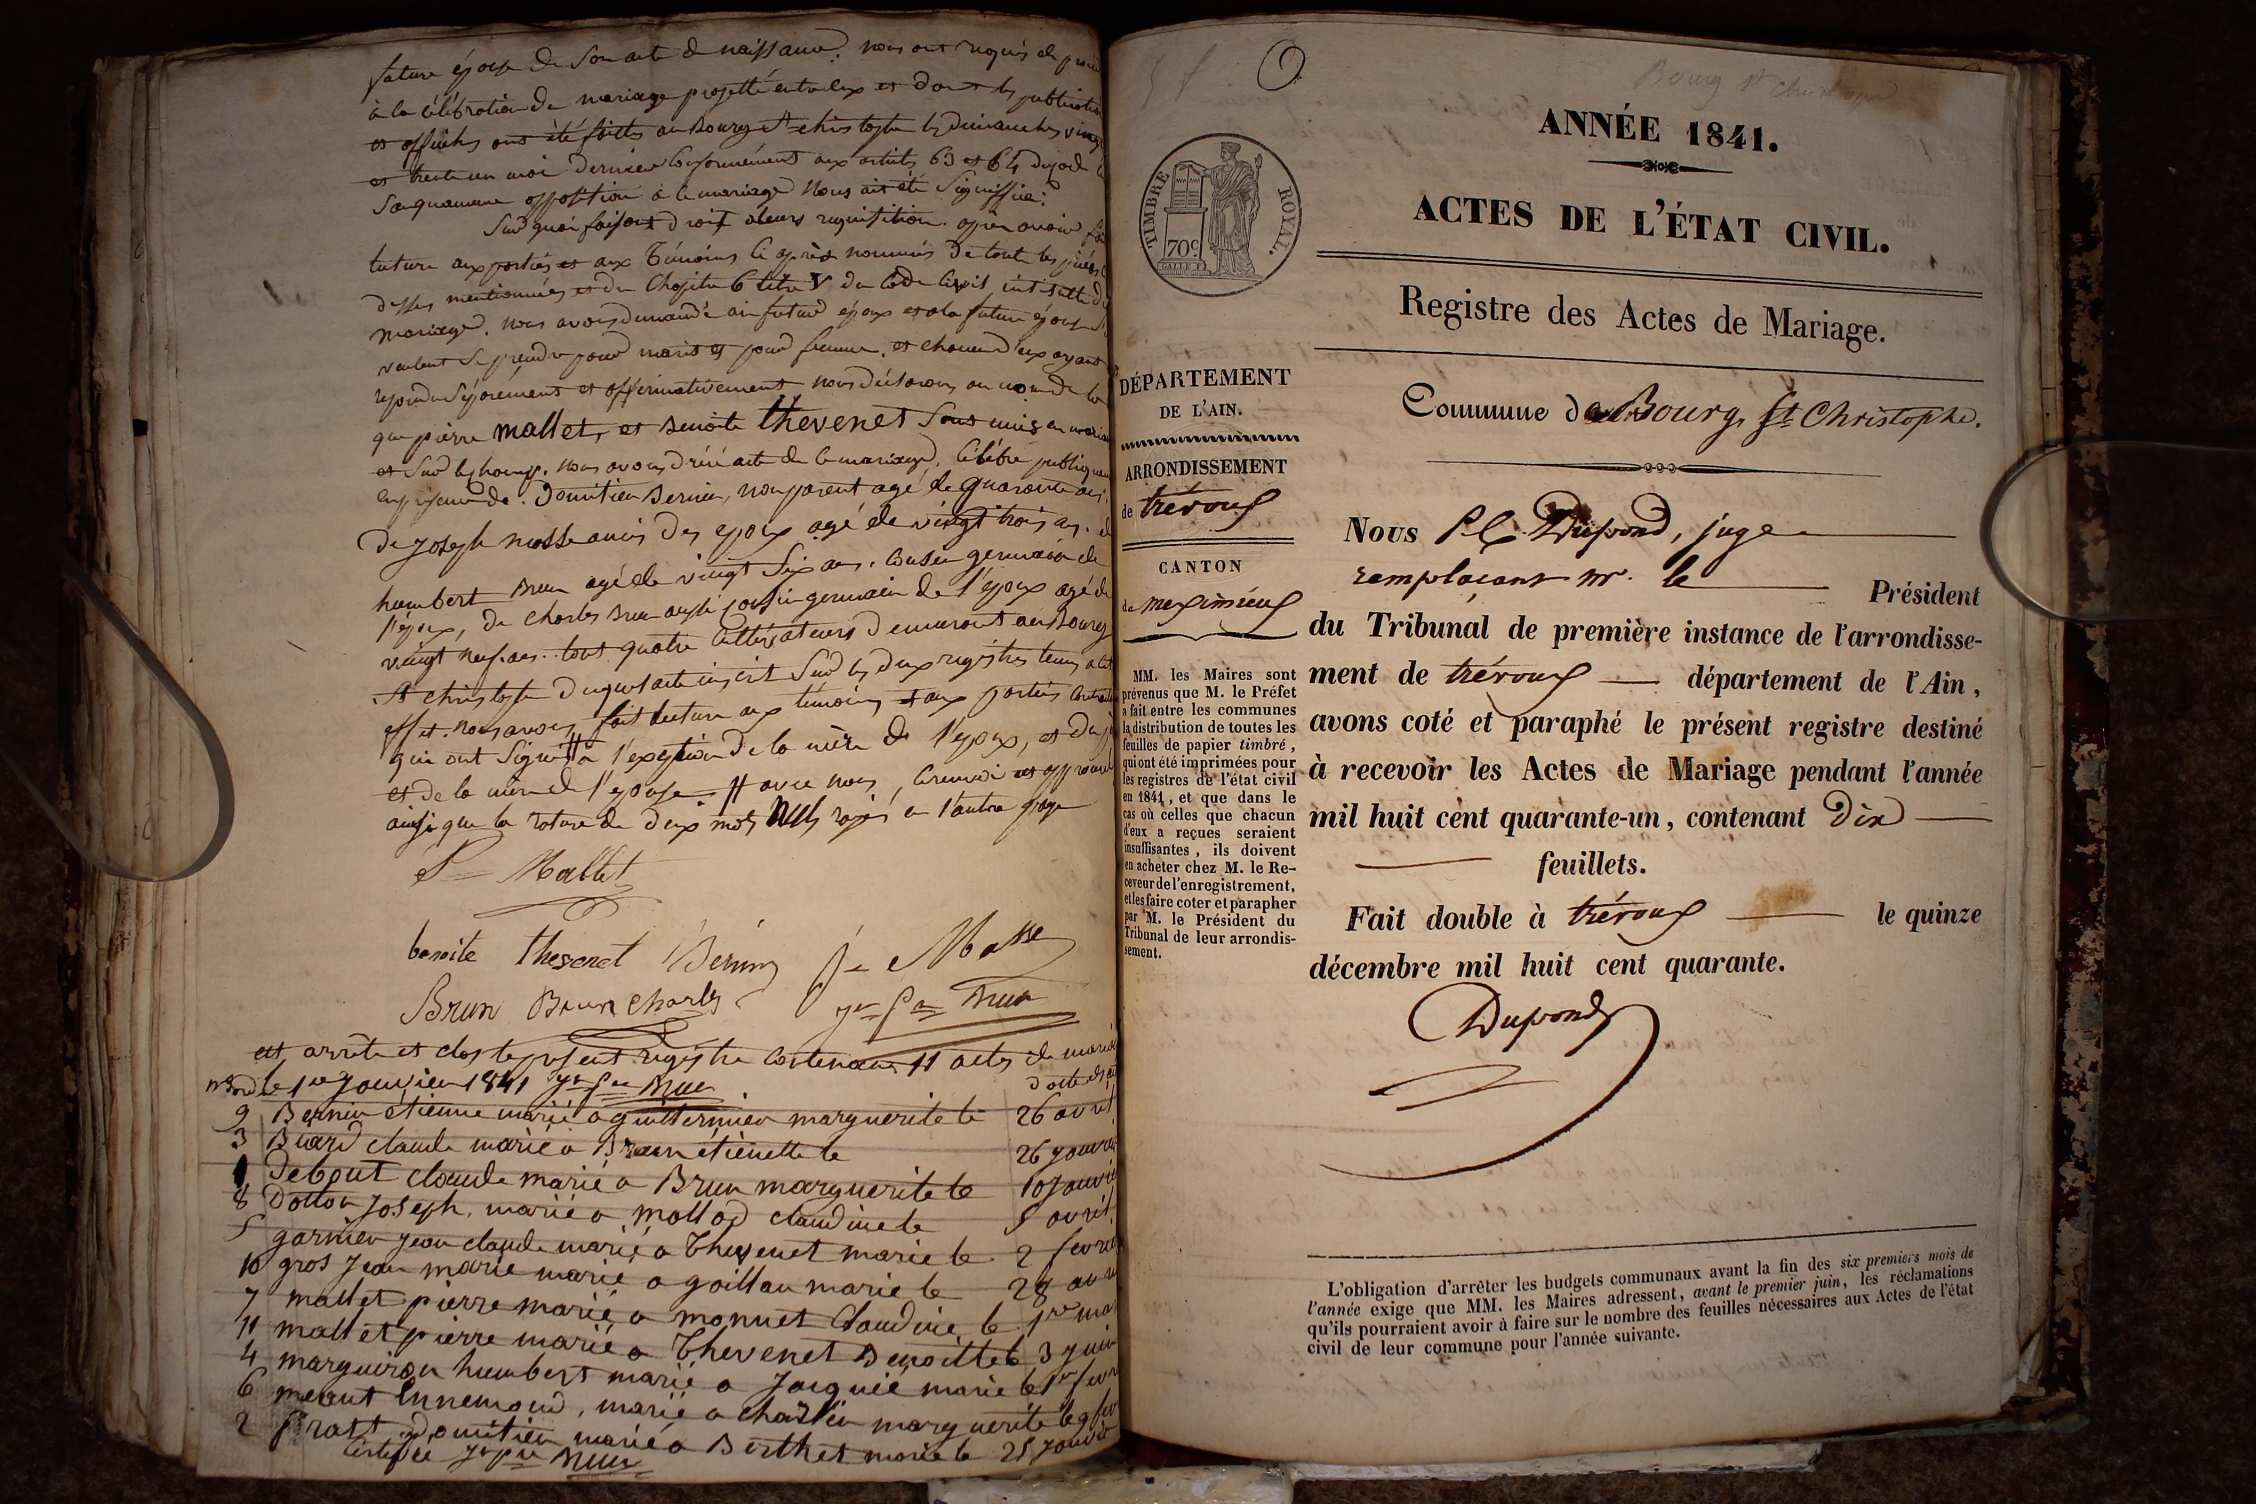 future épouse de Son acte de naissance. nous ont requis de
à la célébration du mariage projetté entr'eux et dont les publications
et affiches ont été faittes au Bourg St christophe les dimanches
et trente un mai dernier Conformément aux articles 63 et 64 du code
Sans qu'aucune opposition à ce mariage nous ait été Signiffiée.
Sur quoi faisant droit à leurs requisition. après avoir
lecture aux parties et aux témoins ci après nommés de toute les pièces
dessus mentionnées et du Chapitre 6 titre V du Code Civil intitulé du
mariage. nous avons demandé au futur époux et a la future épouse
veulent se prendre pour maris et pour femme. et chacun d'eux ayant
repondu séparément et affirmativement nous déclarons au nom de la
que pierre mallet, et Benoite thevenet Sont unis en
et Sur le champ. nous avons dréssé acte de ce mariage. Célébré
en présence de. Domitien Bernin, non parent agé de quarante ans.
De joseph masse amis des epoux agé de vingt trois ans.
humbert Brun agé de vingt Six ans. Cousin germain de
l'époux, de Charles Brun aussi cousin germain de l'époux agé de
vingt neuf ans. tous quatre Cultivateurs demeurant au Bourg
St christophe duquel acte inscrit Sur les deux registres tenus a cet
effet. nous avons fait lecture aux témoins et aux parties
qui ont Signé # à l'exeption de la mère de l'époux, et du
et de la mère de l'épouse. # avec nous,
ainsi que la rature de deux mots nuls rayés en l'autre page
Pre Mallet
benoite thevenet Bernin jh Masse
Brun Brun Charles
arrêté et clos le présent registre Contenant 11 actes de
le 1er janvier 1841
9 Bernin étienne marié a guillerminer marguerite le 26 avril
3 claude marié a Brun étiénette le 26
1 Debout claude marié a Brun marguerite le 10
8 Dotton joseph, marié a mollard claudine le 5 avril
5 garnier jean claude marié a thevenet marie le 2
10 gros jean marie marié a goillau marie le 28
7 mallet pierre marié a monnet Claudine le 1er
11 mallet pierre marié a Thevenet Benoitte le 3 juin
4 marguiron humbert marié a jacquié marie le 1er
6 Ennemond, marié a marguerite le 9
2 Pratt domitien marié a Berthet marie le 25
Bourg St Christophe
ANNÉE 1841.
ACTES DE L'ÉTAT CIVIL.
TIMBRE ROYAL.
70c.
Registre des Actes de Mariage.
Commune de Bourg St Christophe.
DÉPARTEMENT
DE L'AIN.
ARRONDISSEMENT
de trévoux
CANTON
de meximieux
MM. les Maires sont
prévenus que M. le Préfet
a fait entre les communes
la distribution de toutes les
feuilles de papier timbré,
qui ont été imprimées pour
les registres de l'état civil
en 1841, et que dans le
cas où celles que chacun
d'eux a reçues seraient
insuffisantes, ils doivent
en acheter chez M. le Re-
ceveur de l'enregistrement,
et les faire coter et parapher
par M. le Président du
Tribunal de leur arrondis-
sement.
Nous Dupond, juge
remplaçant mr. le Président
du Tribunal de première instance de l'arrondisse-
ment de trévoux département de l'Ain,
avons coté et paraphé le présent registre destiné
à recevoir les Actes de Mariage pendant l'année
mil huit cent quarante-un, contenant Dix
feuillets.
Fait double à trévoux le quinze
décembre mil huit cent quarante.
Dupond
L'obligation d'arrêter les budgets communaux avant la fin des six premiers mois de
l'année exige que MM. les Maires adressent, avant le premier juin, les réclamations
qu'ils pourraient avoir à faire sur le nombre des feuilles nécessaires aux Actes de l'état
civil de leur commune pour l'année suivante.